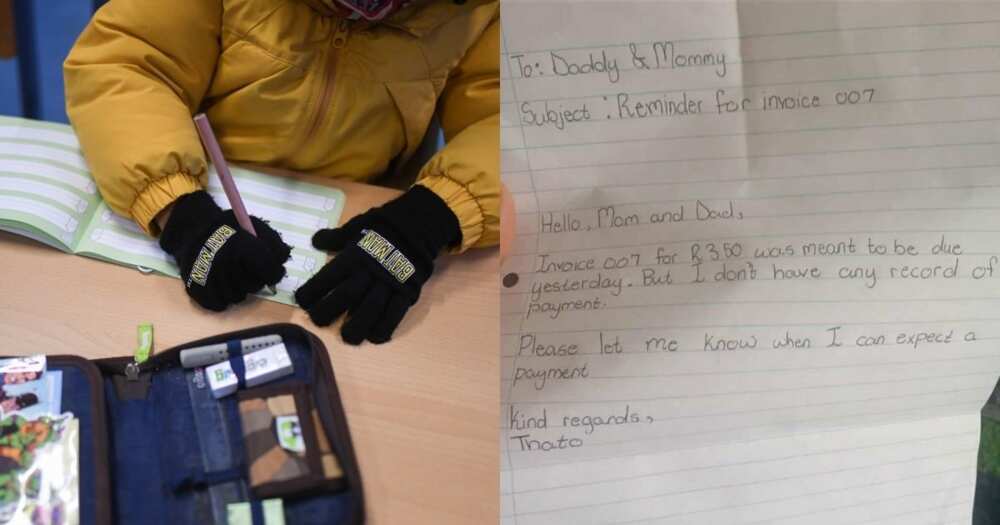 BATMAN
BATMAN
To: Daddy & Mommy
Subject : Reminder for invoice 007
Hello, Mom and Dad,
Invoice 007 for R350 was meant to be due
yesterday. But I don't have any record of
payment.
Please let me know when I can expect a
payment
Kind regards,
Thato